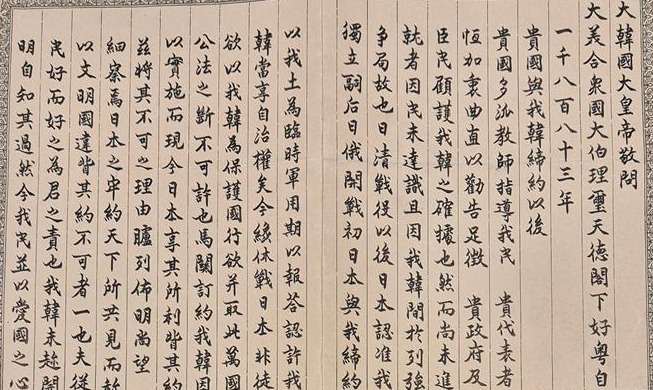 大韓國大皇帝敬問
大美合衆國大伯理璽天德閣下好粵自
一千八百八十三年
貴國與我韓締約以後
貴國多派教師指導我民　貴代表者
恒加衷曲直以勸告足徵　貴政府及
臣民顧護我韓之確據也然而尚未進
就者因民未達識且因我韓間於列强
争局故也日清戰役以後日本認准我
獨立嗣后日俄開戰初日本與我締約
以我土為臨時軍用期以報答認許我
韓當享自治權矣今纔休戰日本非徒
欲以我韓為保護國行欲并取此萬國
公法之斷不可許也馬關訂約我韓因
以實施而現今日本享其所利皆其約
茲將其不可之理由臚列佈明尚望
細察焉日本之牢約天下所共見而敢
以文明國違背其約不可者一也夫從
民好而好之為君之責也我韓未趂開
明自知其過然今我民並以愛國之心